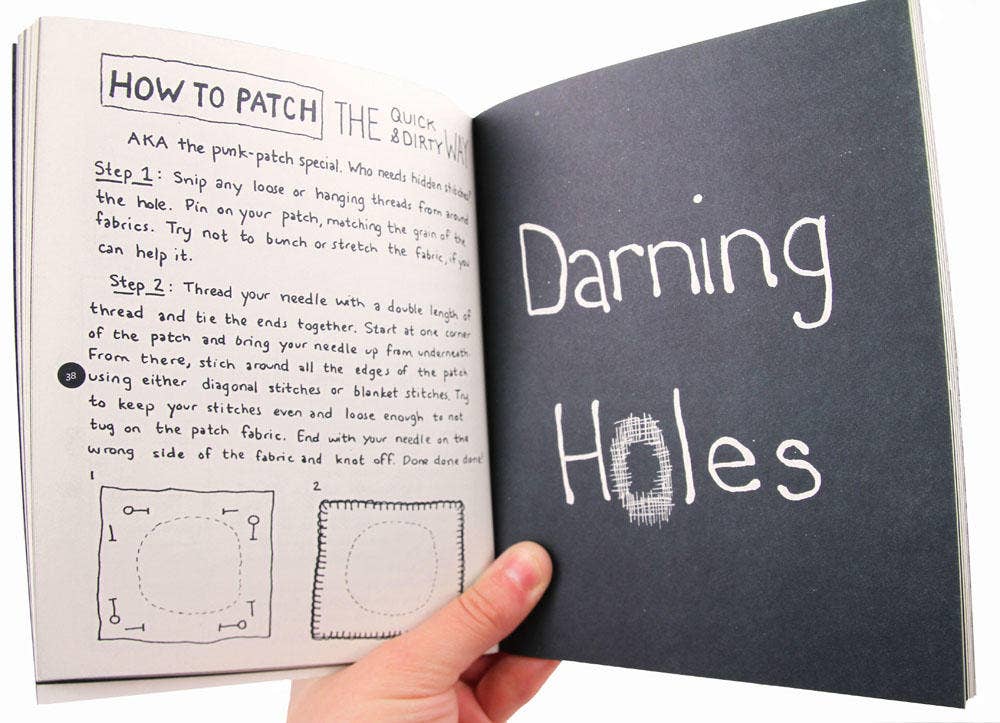 HOW TO PATCH THE QUICK & DIRTY WAY
AKA the punk-patch special. Who needs hidden stitches?
Step 1: Snip any loose or hanging threads from around
the hole. Pin on your patch, matching the grain of the
fabrics. Try not to bunch or stretch the fabric, if you
can help it.
Step 2: Thread your needle with a double length of
thread and tie the ends together. Start at one corner
of the patch and bring your needle up from underneath.
From there, stich around all the edges of the patch
38
using either diagonal stitches or blanket stitches. Try
to keep your stitches even and loose enough to not
tug on the patch fabric. End with your needle on the
wrong side of the fabric and knot off. Done done done!
1
2
Darning
Holes